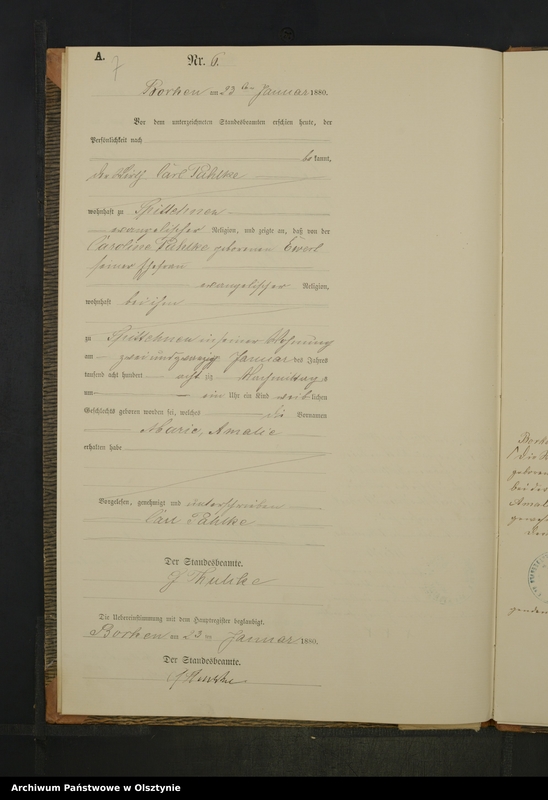 A.
7
Nr. 6.
Borken am 23 ten Januar 1880.
Vor dem unterzeichneten Standesbeamten erschien heute, der
Persönlichkeit nach
bekannt,
der Carl Pahlke
wohnhaft zu
evangelischer Religion, und zeigte an, daß von der
Caroline Pahlke geborenen
seiner Ehefrau
evangelischer Religion,
wohnhaft bei ihm
zu in seiner Wohnung
am zwei und zwanzig Januar des Jahres
tausend acht hundert acht zig Nachmittags
um ein Uhr ein Kind weiblichen
Geschlechts geboren worden sei, welches die Vornamen
Marie, Amalie
erhalten habe
Vorgelesen, genehmigt und unterschrieben
Carl Pahlke
Der Standesbeamte.
Die Uebereinstimmung mit dem Hauptregister beglaubigt.
Borken am 23 ten Januar 1880.
Der Standesbeamte.
Archiwum Państwowe w Olsztynie